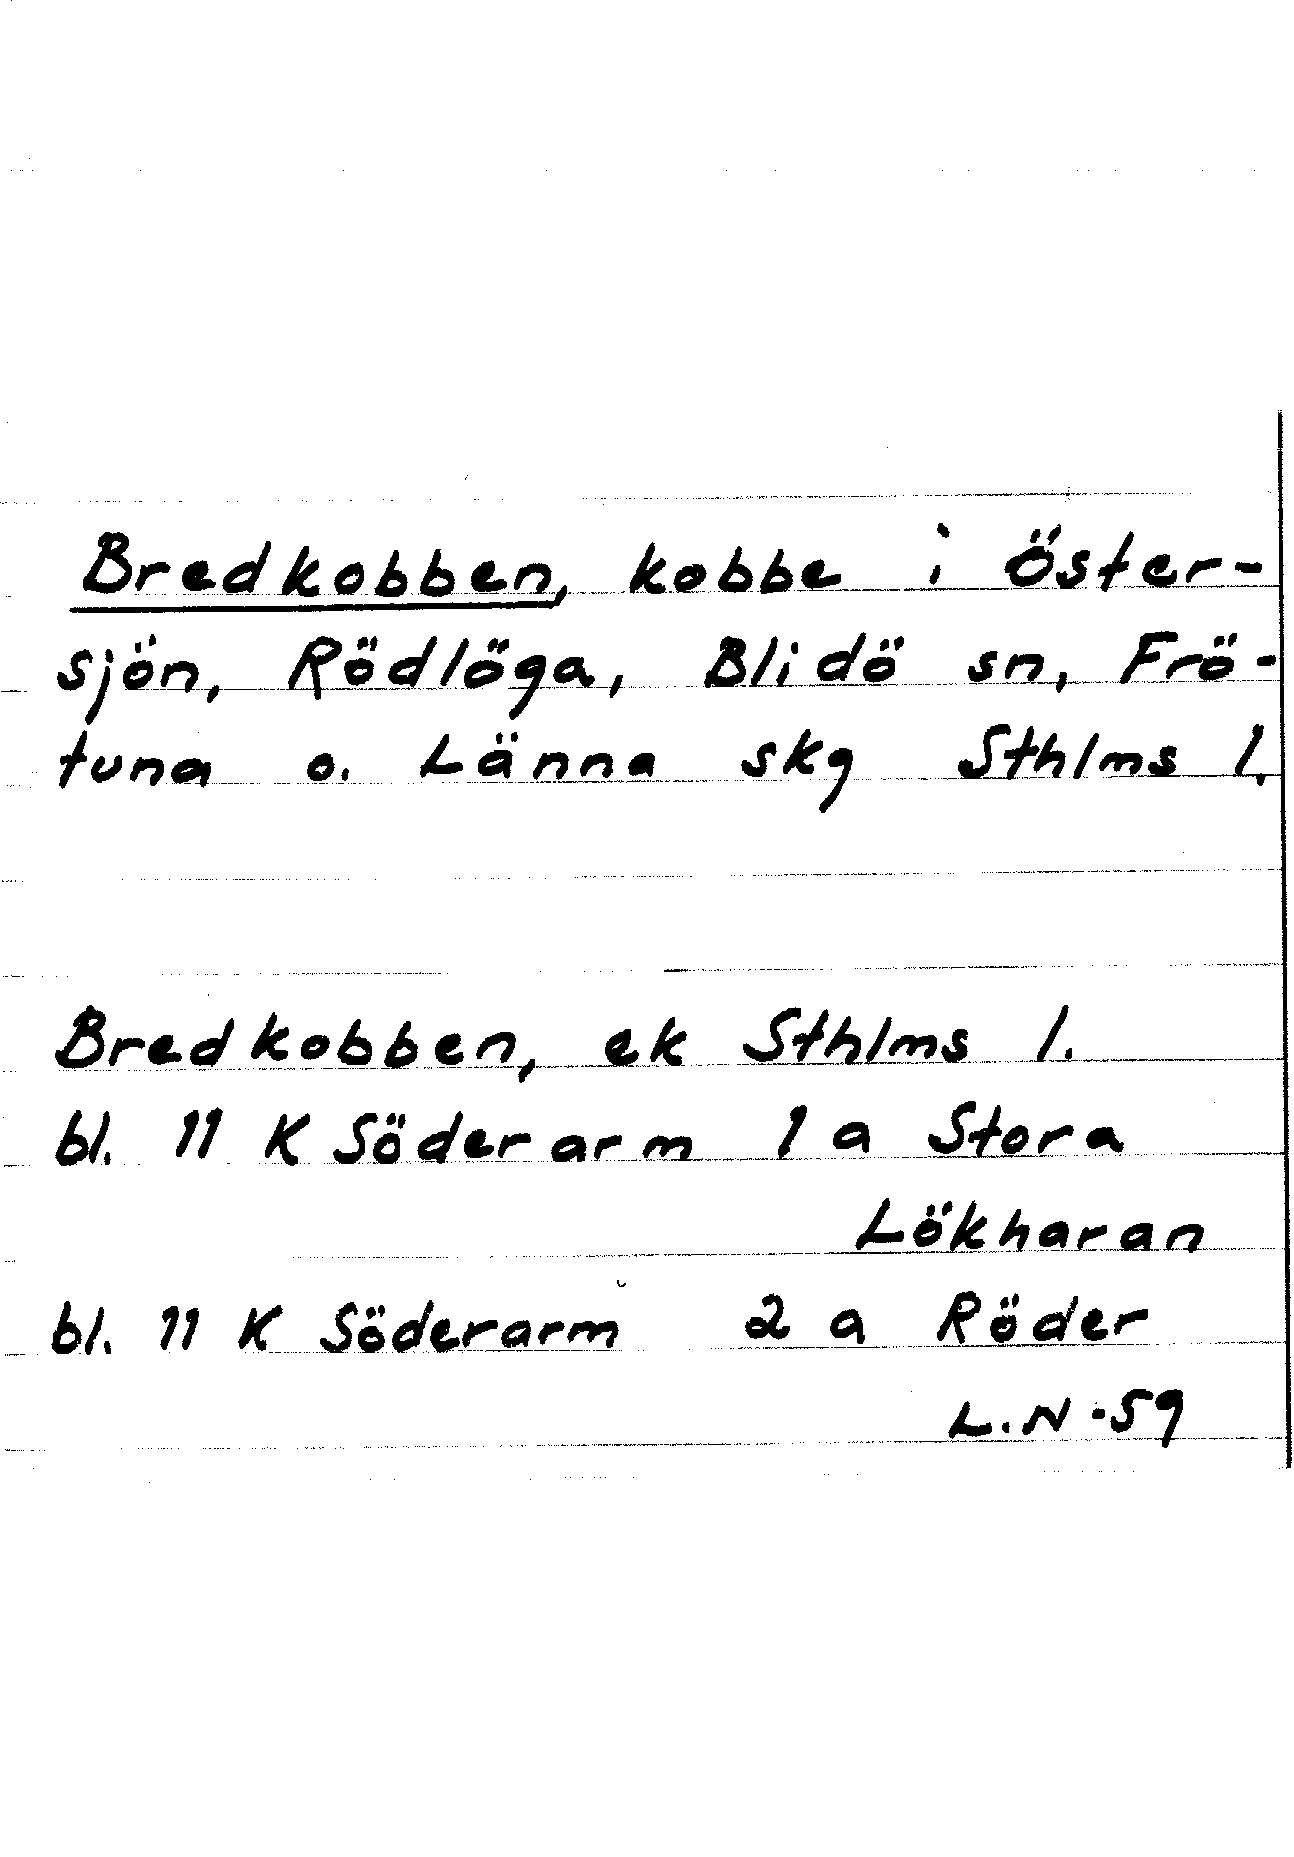 Bredkobben, kobbe i Öster-
sjön, Rödlöga, Blidö sn, Frö-
tuna o. Länna skg Sthlms l.
Bredkobben, ek Sthlms l.
bl. 11 K Söderarm 1 a Stora
Lökharan
bl. 11 K Söderarm 2 a Röder
L.N -59